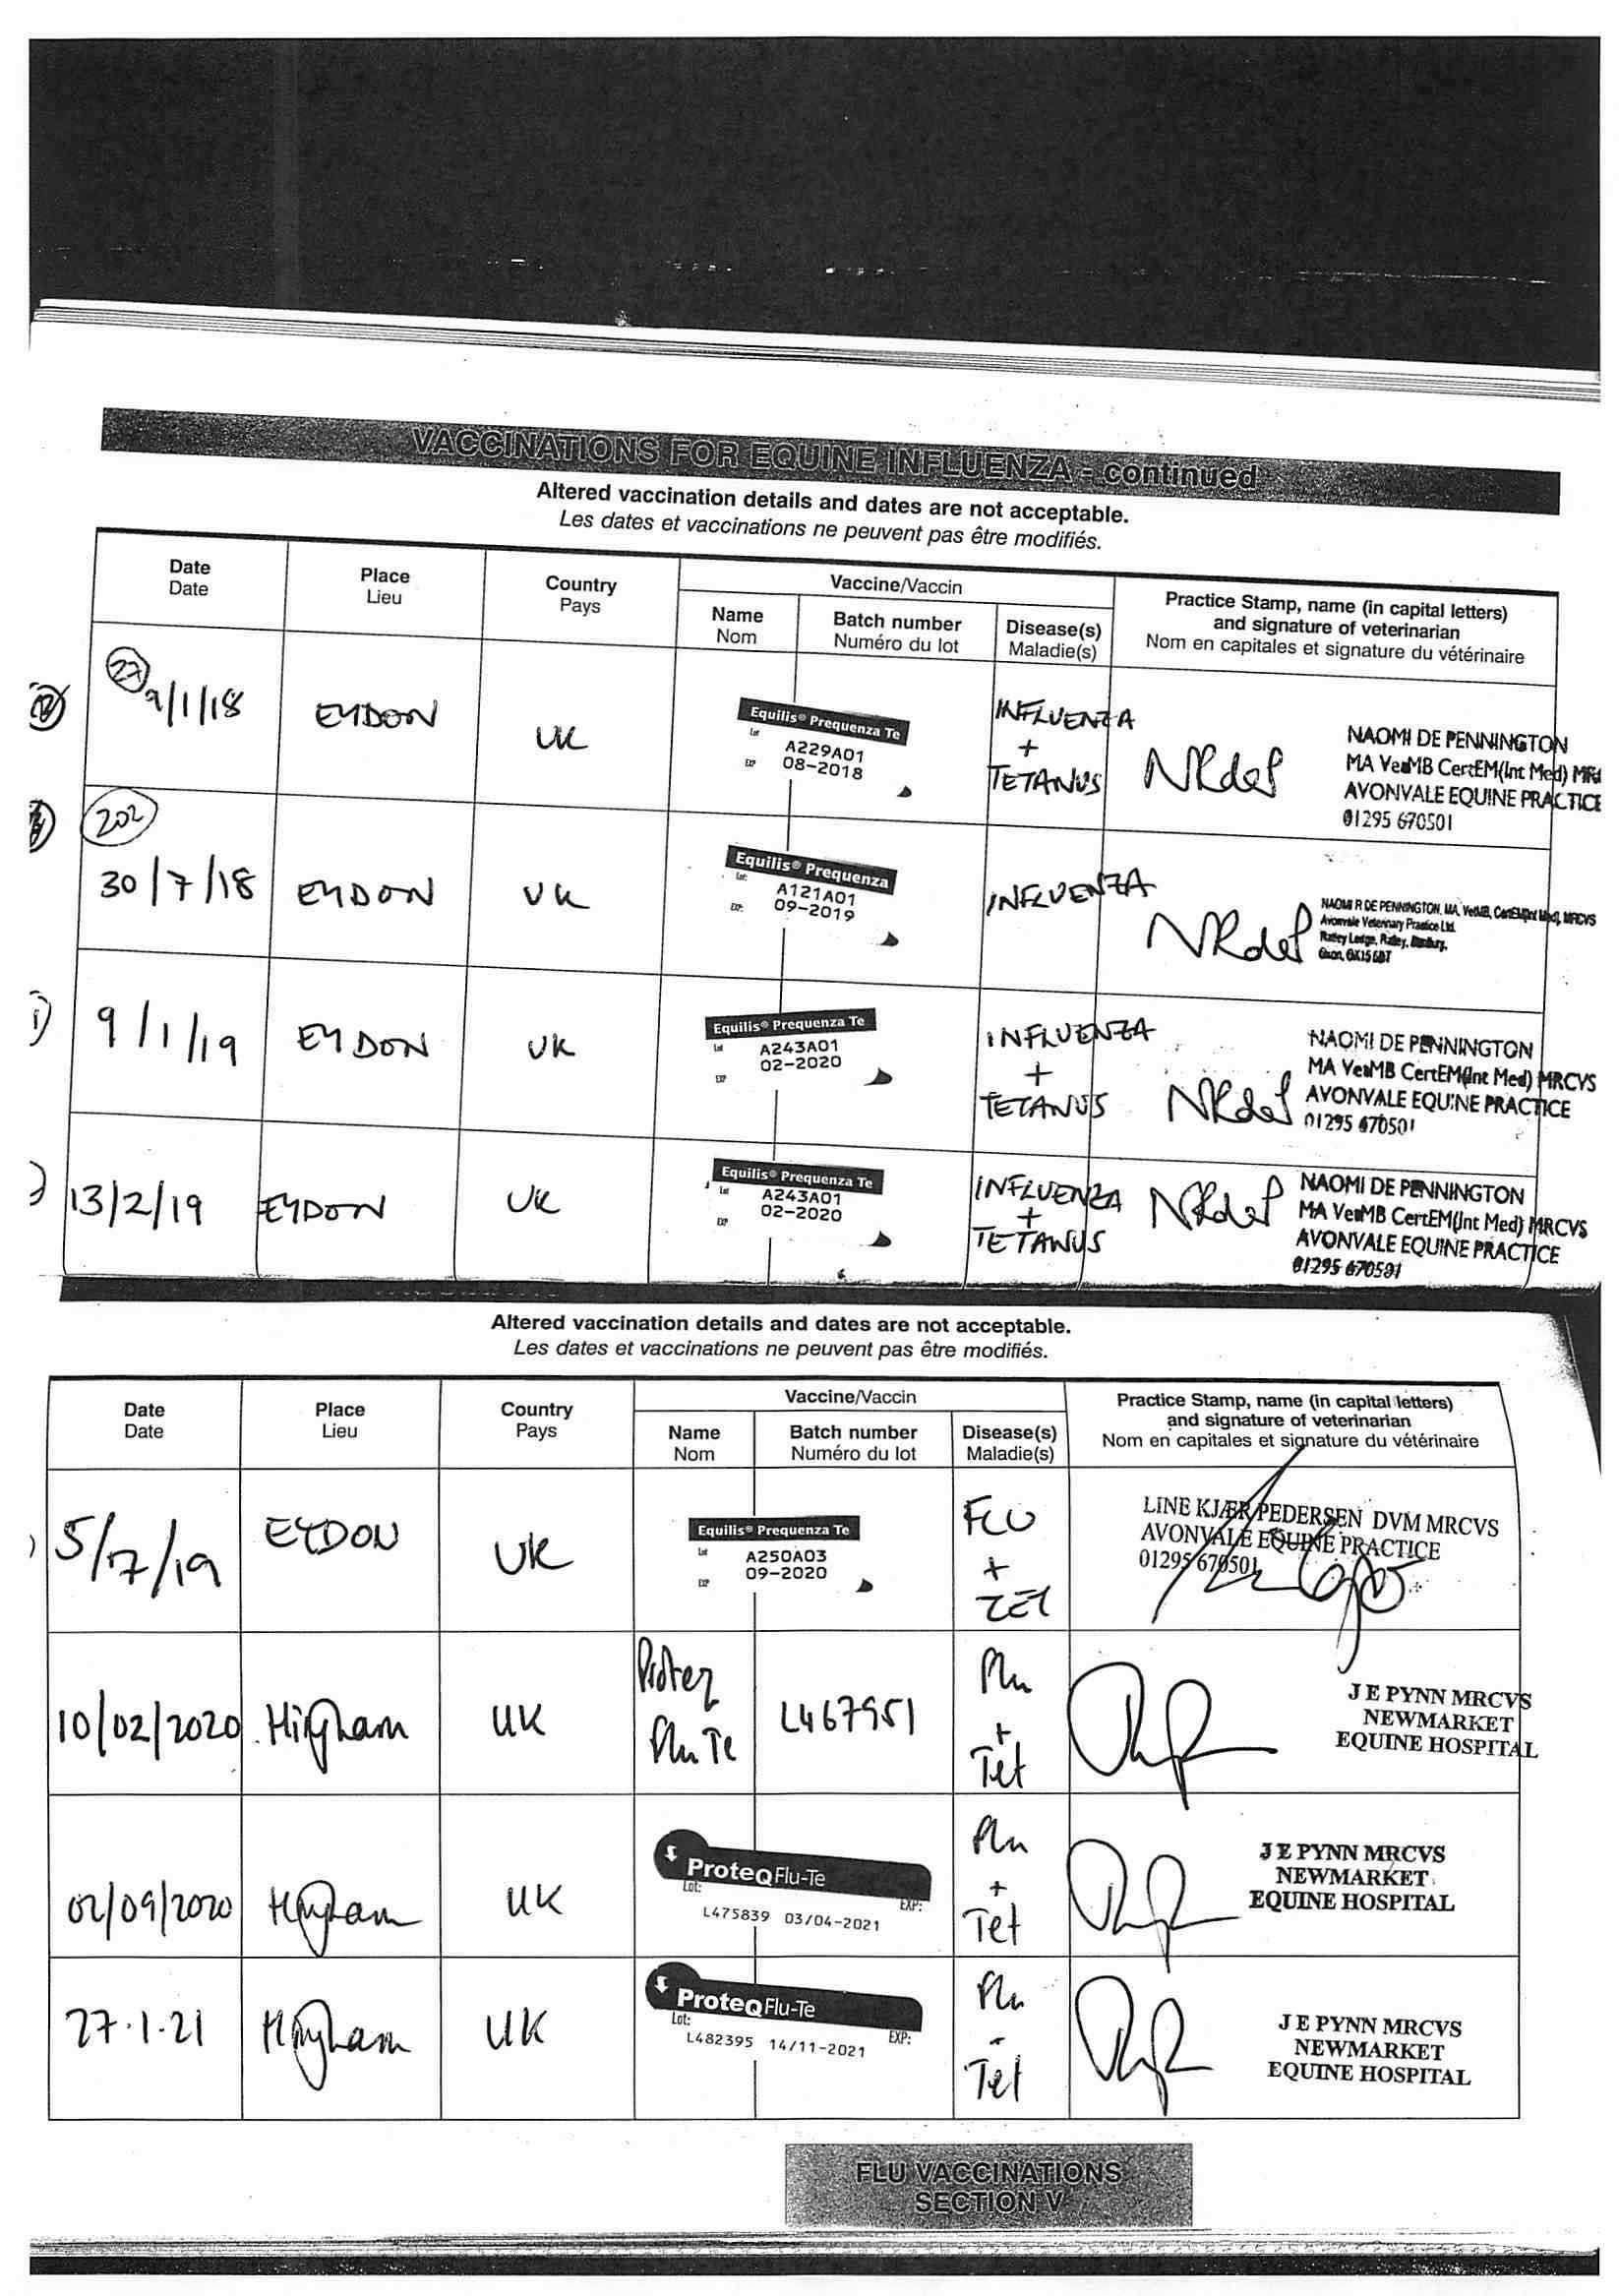 VACCINATIONS FOR EQUINE INFLUENZA - continued
Altered vaccination details and dates are not acceptable.
Les dates et vaccinations ne peuvent pas être modifiés.
Date
Date
Place
Lieu
Country
Pays
Vaccine/Vaccin
Name
Nom
Batch number
Numéro du lot
Disease(s)
Maladie(s)
Practice Stamp, name (in capital letters)
and signature of veterinarian
Nom en capitales et signature du vétérinaire
27
9/1/18
EYDON
UK
Equilis® Prequenza Te
Lot
A229A01
EXP
08-2018
INFLUENZA
+
TETANUS
NRdeP
NAOMI DE PENNINGTON
MA VetMB CertEM(Int Med)
AVONVALE EQUINE PRACTICE
01295 670501
202
30/7/18
EYDON
UK
Equilis® Prequenza
Lot:
A121A01
EXP:
09-2019
INFLUENZA
NRdeP
NAOMI R DE PENNINGTON, MA, VetMB, CertEM(Int Med), MRCVS
Avonvale Veterinary Practice Ltd.
Ratley Lodge, Ratley, Banbury,
Oxon, OX15 6DT
9/1/19
EYDON
UK
Equilis® Prequenza Te
Lot
A243A01
02-2020
EXP
INFLUENZA
+
TETANUS
NRdeP
NAOMI DE PENNINGTON
MA VetMB CertEM(Int Med) MRCVS
AVONVALE EQUINE PRACTICE
01295 670501
13/2/19
EYDON
UK
Equilis® Prequenza Te
Lot
A243A01
02-2020
EXP
INFLUENZA
+
TETANUS
NRdeP
NAOMI DE PENNINGTON
MA VetMB CertEM(Int Med) MRCVS
AVONVALE EQUINE PRACTICE
01295 670501
Altered vaccination details and dates are not acceptable.
Les dates et vaccinations ne peuvent pas être modifiés.
Date
Date
Place
Lieu
Country
Pays
Vaccine/Vaccin
Name
Nom
Batch number
Numéro du lot
Disease(s)
Maladie(s)
Practice Stamp, name (in capital letters)
and signature of veterinarian
Nom en capitales et signature du vétérinaire
5/7/19
EYDON
UK
Equilis® Prequenza Te
Lot
A250A03
09-2020
EXP
FLU
+
TET
LINE KJÆR PEDERSEN DVM MRCVS
AVONVALE EQUINE PRACTICE
01295 670501
10/02/2020
Higham
UK
Proteq
Flu Te
L467951
Flu
+
Tet
J E PYNN MRCVS
NEWMARKET
EQUINE HOSPITAL
02/09/2020
Higham
UK
ProteqFlu-Te
Lot:
EXP:
L475839 03/04-2021
Flu
+
Tet
J E PYNN MRCVS
NEWMARKET
EQUINE HOSPITAL
27.1.21
Higham
UK
ProteqFlu-Te
Lot:
EXP:
L482395 14/11-2021
Flu
-
Tet
J E PYNN MRCVS
NEWMARKET
EQUINE HOSPITAL
FLU VACCINATIONS
SECTION V